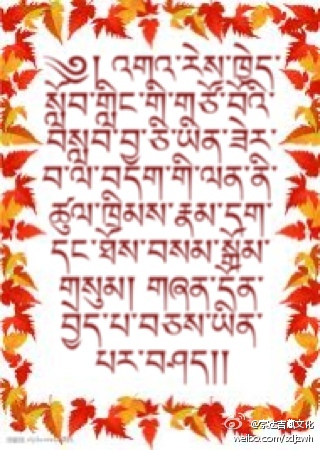 ༄། འགའ་རེས་ཁྱེད་
སློབ་གླིང་གི་གཙོ་བོའི་
བསླབ་བྱ་ཅི་ཡིན་ཟེར་
བ་ལ་བདག་གི་ལན་ནི་
ཚུལ་ཁྲིམས་རྣམ་དག་
དང་ཐོས་བསམ་སྒོམ་
གསུམ། གཞན་དོན་
བྱེད་པ་བཅས་ཡིན་
པར་བཤད།།
weibo.com/xdjzwh